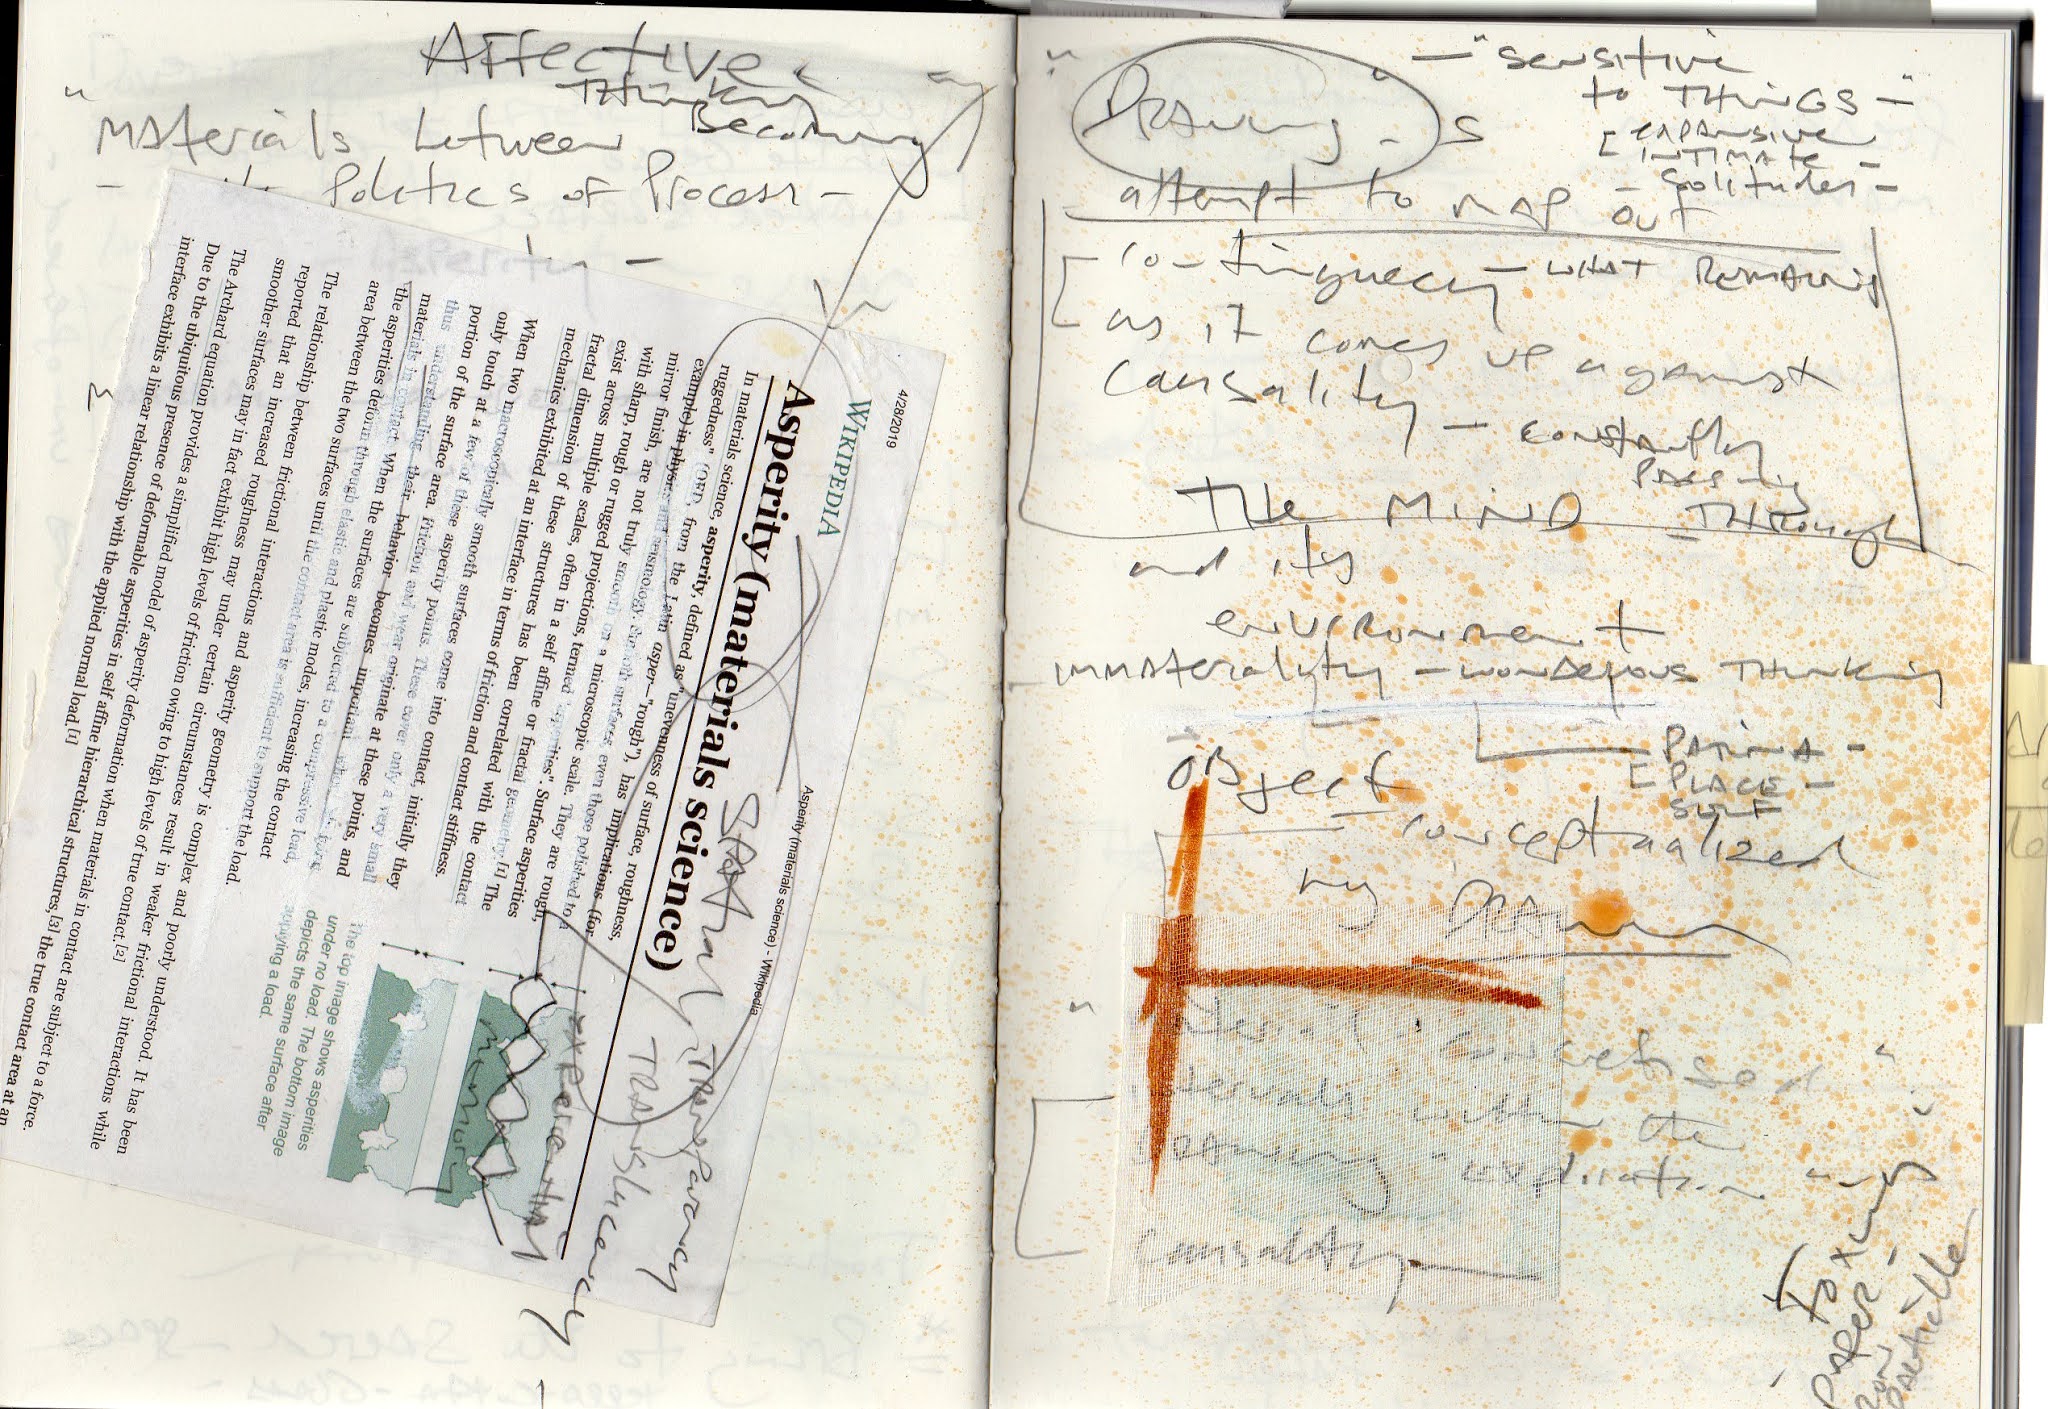 Affective
Thinking
Becoming
"Materials between
Politics of Process -
Asperity -
4/28/2019
Asperity (materials science) - Wikipedia
WIKIPEDIA
Asperity (materials science)
In materials science, asperity, defined as "unevenness of surface, roughness,
ruggedness" (OED, from the Latin asper—"rough"), has implications (for
example) in physics and seismology. Smooth surfaces, even those polished to a
mirror finish, are not truly smooth on a microscopic scale. They are rough,
with sharp, rough or rugged projections, termed "asperities". Surface asperities
exist across multiple scales, often in a self affine or fractal geometry.[1] The
fractal dimension of these structures has been correlated with the contact
mechanics exhibited at an interface in terms of friction and contact stiffness.
When two macroscopically smooth surfaces come into contact, initially they
only touch at a few of these asperity points. These cover only a very small
portion of the surface area. Friction and wear originate at these points, and
thus understanding their behavior becomes important when
materials in contact. When the surfaces are subjected to a compressive load,
the asperities deform through elastic and plastic modes, increasing the contact
area between the two surfaces until the contact area is sufficient to support the load.
The relationship between frictional interactions and asperity geometry is complex and poorly understood. It has been
reported that an increased roughness may under certain circumstances result in weaker frictional interactions while
smoother surfaces may in fact exhibit high levels of friction owing to high levels of true contact.[2]
The Archard equation provides a simplified model of asperity deformation when materials in contact are subject to a force.
Due to the ubiquitous presence of deformable asperities in self affine hierarchical structures,[3] the true contact area at an
interface exhibits a linear relationship with the applied normal load.[1]
The top image shows asperities
under no load. The bottom image
depicts the same surface after
applying a load.
Spatial
Transparency
Translucency
Experiential
Memory
Drawing - s
- "Sensitive
to THINGS - "
[expansive
INTIMATE -
Solitudes -
attempt to map out
contingency - WHAT Remains
as it comes up against
Causality - constantly
passing
THE MIND - Through
and its
environment
immateriality - wonderous Thinking
PATINA -
[PLACE -
SELF
object
conceptualized
by Drawing
concretised
intervals within the
drawing exploration
causality
Foxing
paper -